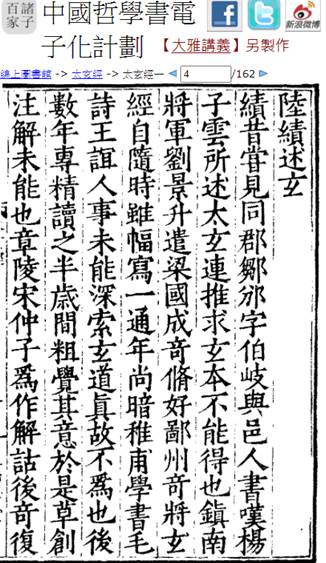 諸子
百家
中國哲學書電
子化計劃
【大雅講義】另製作
新浪微博
線上圖書館 -> 太玄經 -> 太玄經一
4
/162
陸績述玄
績昔嘗見同郡鄒邠字伯岐與邑人書嘆楊
子雲所述太玄連推求玄本不能得也鎮南
將軍劉景升遣梁國成奇脩好鄙州奇將玄
經自隨時雖幅寫一通年尚暗稚甫學書毛
詩王誼人事未能深索玄道真故不爲也後
數年專精讀之半歲間粗覺其意於是草創
注解未能也章陵宋仲子爲作解詁後奇復